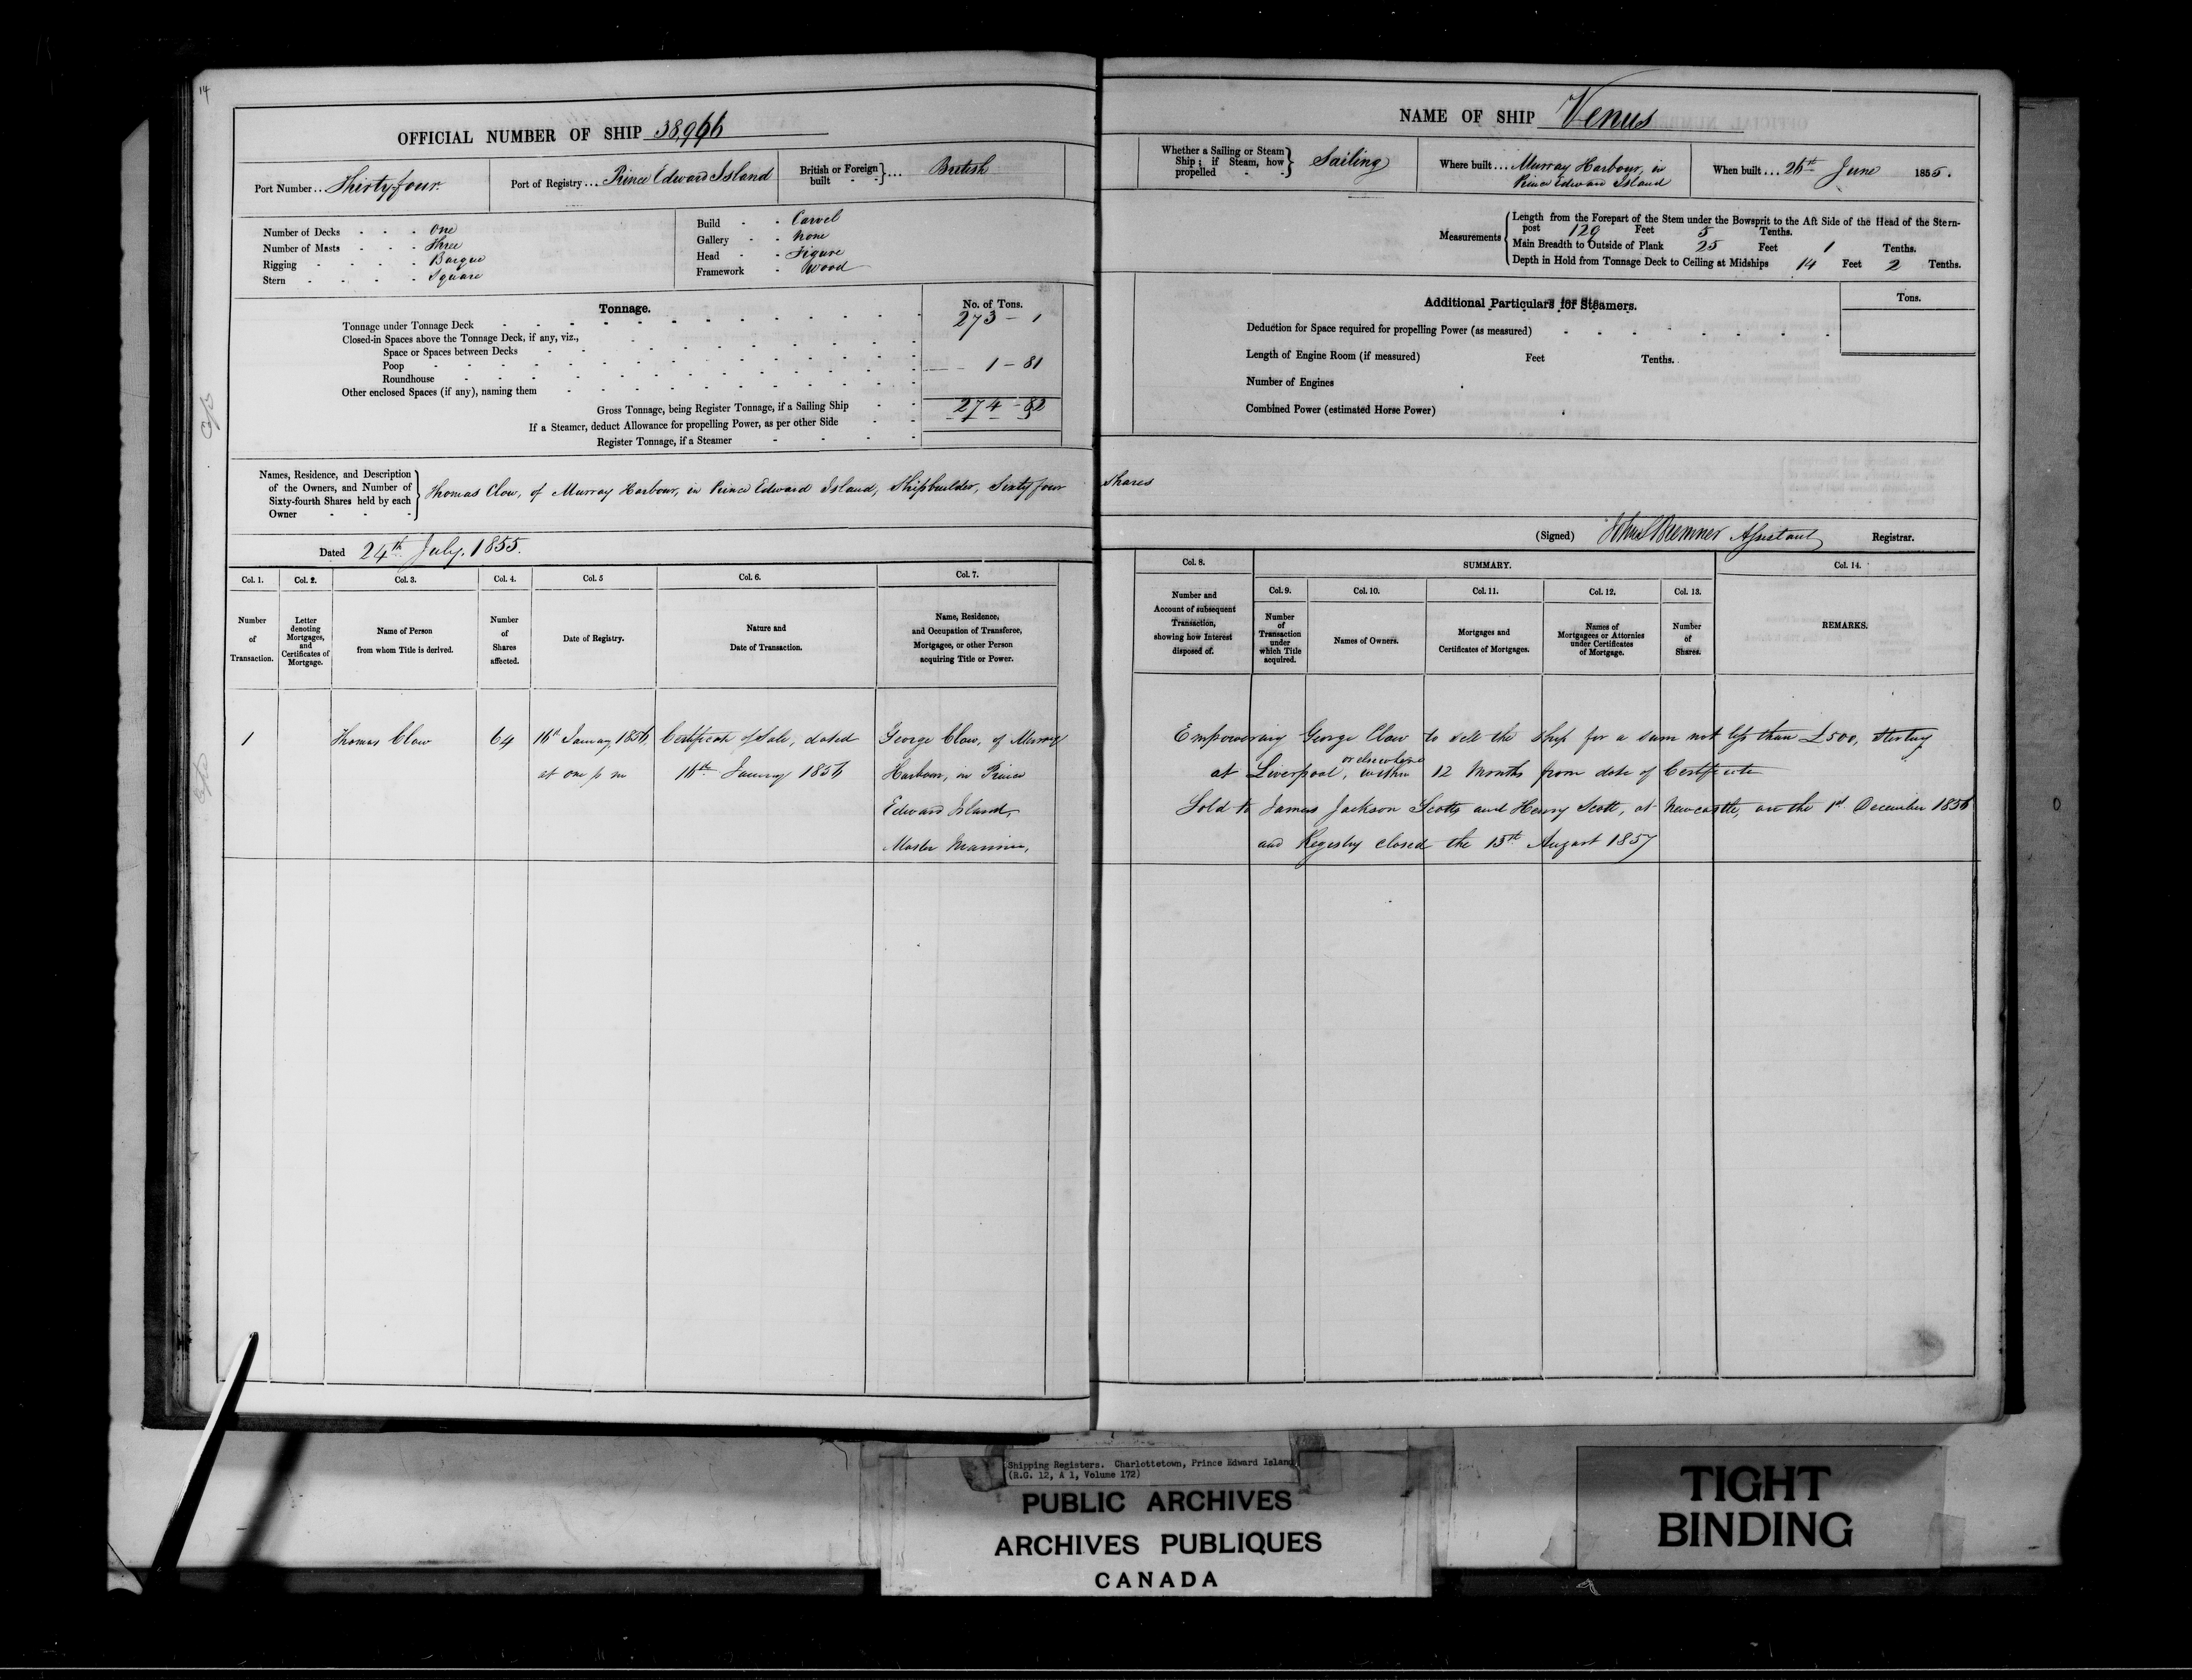 14
OFFICIAL NUMBER OF SHIP 38,966
Port Number... Thirty four
Port of Registry... Prince Edward Island
British or Foreign built } ... British
Number of Decks - - - One
Number of Masts - - - Three
Rigging - - - - Barque
Stern - - - - Square
Build - - Carvel
Gallery - - None
Head - - Figure
Framework - Wood
Tonnage.
No. of Tons.
Tonnage under Tonnage Deck 273 - 1
Closed-in Spaces above the Tonnage Deck, if any, viz.,
Space or Spaces between Decks
Poop 1 - 81
Roundhouse
Other enclosed Spaces (if any), naming them
Gross Tonnage, being Register Tonnage, if a Sailing Ship 274 - 82
If a Steamer, deduct Allowance for propelling Power, as per other Side
Register Tonnage, if a Steamer
Names, Residence, and Description
of the Owners, and Number of
Sixty-fourth Shares held by each
Owner
Thomas Clow, of Murray Harbour, in Prince Edward Island, Shipbuilder, Sixty four Shares
Dated 24th July, 1855.
Col. 1. Col. 2. Col. 3. Col. 4. Col. 5 Col. 6. Col. 7.
Number of Transaction.
Letter denoting Mortgages, and Certificates of Mortgage.
Name of Person from whom Title is derived.
Number of Shares affected.
Date of Registry.
Nature and Date of Transaction.
Name, Residence, and Occupation of Transferee, Mortgagee, or other Person acquiring Title or Power.
1 Thomas Clow 64 16th January 1856 Certificate of Sale, dated George Clow, of Murray
at one p m 16th January 1856 Harbour, in Prince
Edward Island,
Master Mariner,
NAME OF SHIP Venus
Whether a Sailing or Steam Ship; if Steam, how propelled } Sailing
Where built... Murray Harbour, in
Prince Edward Island
When built... 26th June 1855.
Measurements
Length from the Forepart of the Stem under the Bowsprit to the Aft Side of the Head of the Stern-
post 129 Feet 5 Tenths.
Main Breadth to Outside of Plank 25 Feet 1 Tenths.
Depth in Hold from Tonnage Deck to Ceiling at Midships 14 Feet 2 Tenths.
Additional Particulars for Steamers.
Tons.
Deduction for Space required for propelling Power (as measured)
Length of Engine Room (if measured) Feet Tenths.
Number of Engines
Combined Power (estimated Horse Power)
(Signed) Bremner Assistant Registrar.
Col. 8. SUMMARY. Col. 14.
Col. 9. Col. 10. Col. 11. Col. 12. Col. 13.
Number and Account of subsequent Transaction, showing how Interest disposed of.
Number of Transaction under which Title acquired.
Names of Owners.
Mortgages and Certificates of Mortgages.
Names of Mortgagees or Attornies under Certificates of Mortgage.
Number of Shares.
REMARKS.
Empowering George Clow to sell the Ship for a sum not less than £500, Sterling
at Liverpool, or elsewhere within 12 Months from date of Certificate
Sold to James Jackson Scott and Henry Scott, at Newcastle, on the 1st December 1856
and Registry closed the 15th August 1857
Shipping Registers. Charlottetown, Prince Edward Island
(R.G. 12, A 1, Volume 172)
PUBLIC ARCHIVES
ARCHIVES PUBLIQUES
CANADA
TIGHT
BINDING